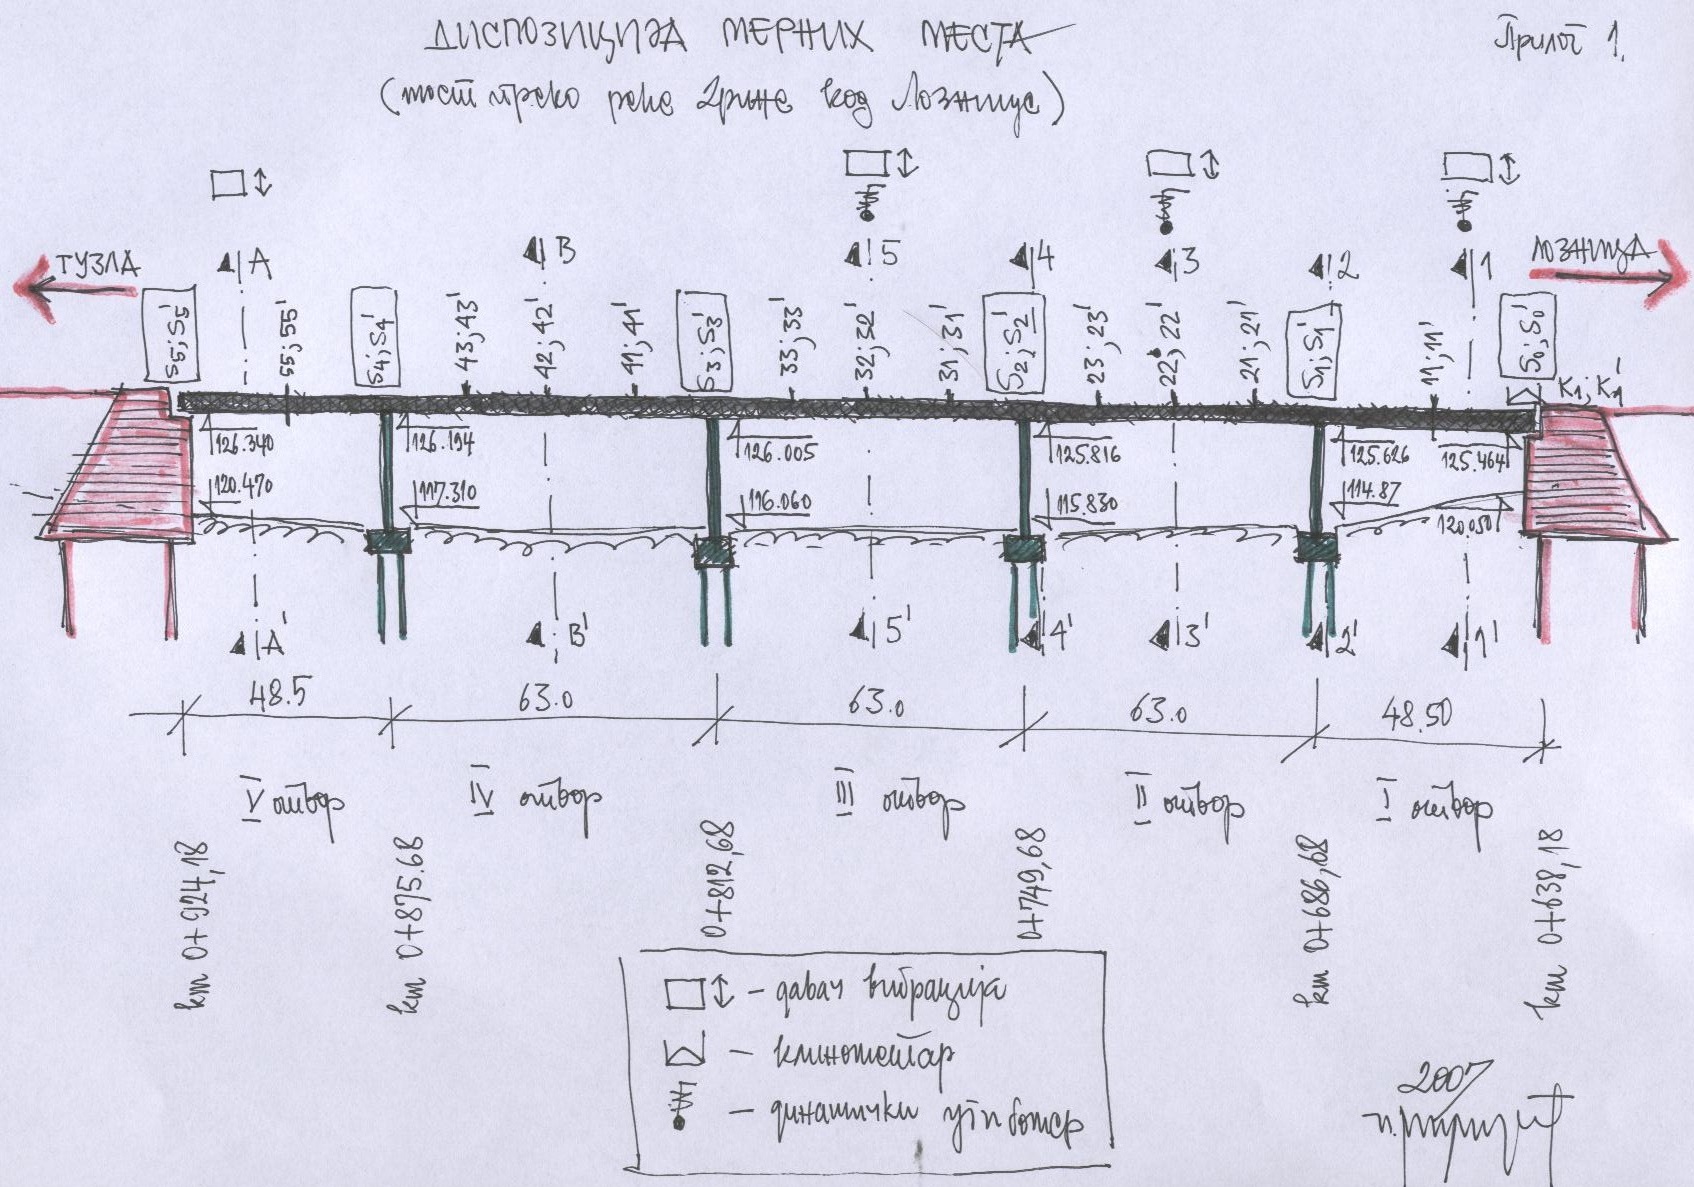 ДИСПОЗИЦИЈА МЕРНИХ МЕСТА
Прилог 1.
(мост преко реке Дрине код Лознице)
ТУЗЛА
A
B
5
4
3
2
1
ЛОЗНИЦА
S5; S5'
55; 55'
S4; S4'
43; 43'
42; 42'
41; 41'
S3; S3'
33; 33'
32; 32'
31; 31'
S2; S2'
23; 23'
22; 22'
21; 21'
S1; S1'
11; 11'
S0; S0'
K1; K1'
126.340
126.194
126.005
125.816
125.626
125.464
120.470
117.310
116.060
115.830
114.87
120.050
A'
B'
5'
4'
3'
2'
1'
48.5
63.0
63.0
63.0
48.50
V отвор
IV отвор
III отвор
II отвор
I отвор
km 0+924,18
km 0+875.68
0+812,68
0+749,68
km 0+686,68
km 0+638,18
– давач вибрација
– клинометар
– динамички угибомер
2007